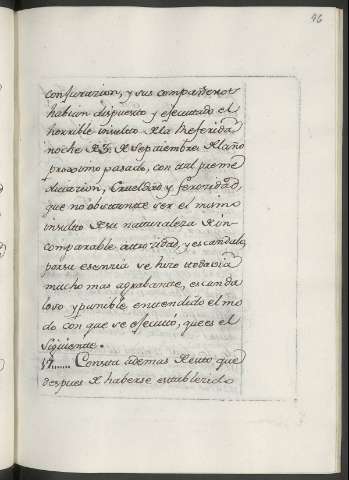 96
conjurazion, y sus compañeros
habian dispuesto y efecutado el
horrible insulto de la Referida
noche de 3, de Septiembre, del año
proximo pasado, con tal preme
ditazion, Crueldad y ferozidad,
que no obstante ser el mismo
insulto de su naturaleza de in-
comparable atrozidad, y escandalo,
por su esenzia se hizo todavia
mucho mas agrabante, escanda
loso y punible entendido el mo
do con que se efecutó, que es el
siguiente.
17...... Consta ademas de esto, que
despues de haberse establezido